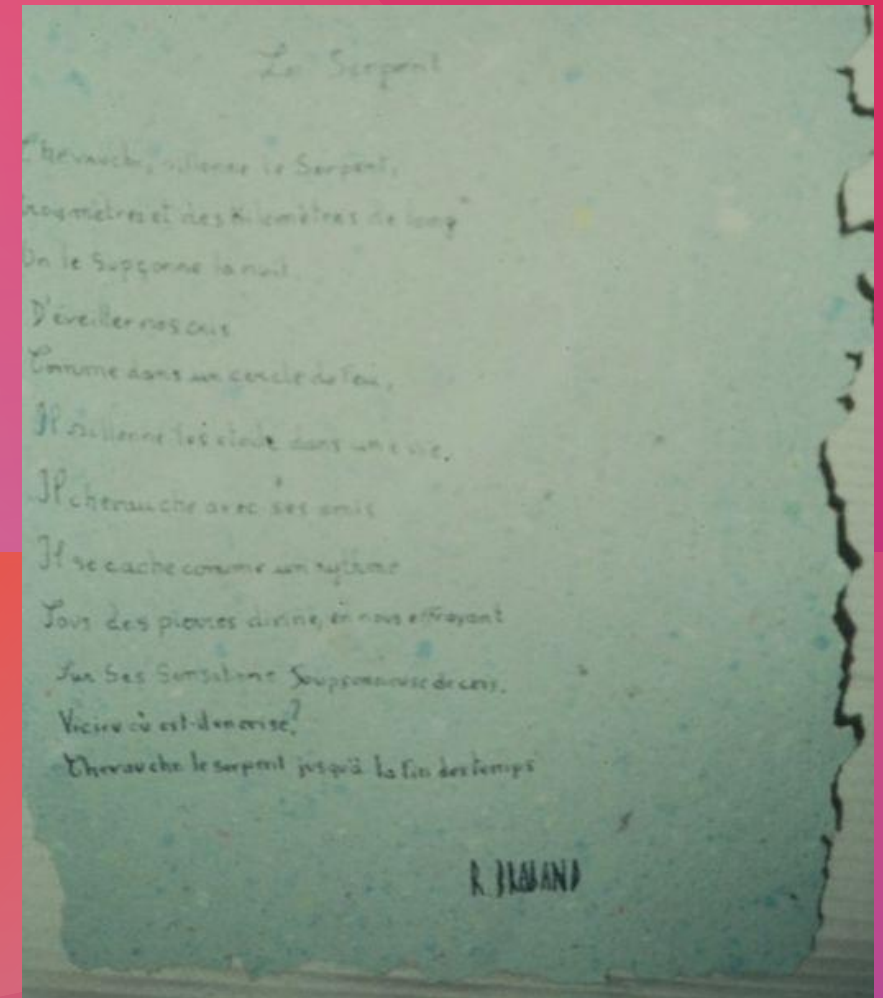 Le Serpent
Chevauche, sillonne le Serpent,
mètres et des Kilomètres de long
On le Supçonne la nuit
D'éveiller nos
Comme dans un cercle de feu,
Il sillonne les dans une vie.
Il chevauche avec ses amis
Il se cache comme un
Sous des pierres divine, en nous effrayant
Sur Ses Soupsonneuse de
où est-il
Chevauche le serpent jusqu'à la fin des temps
R. BRABAND